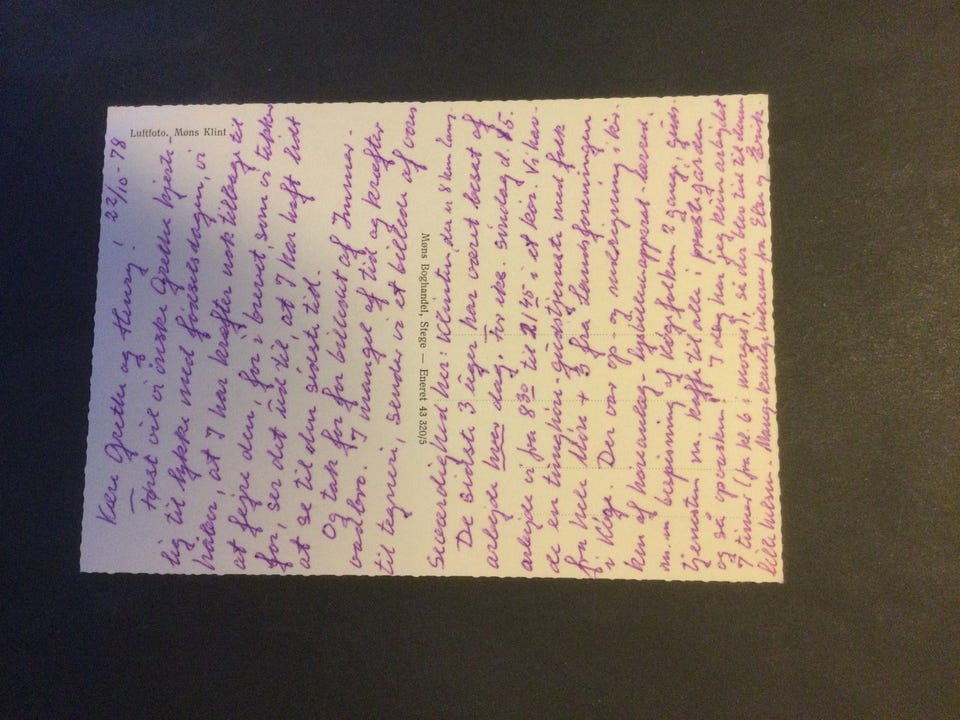 Luftfoto. Møns Klint
Kære Grethe og Henry! 22/10-78
Først vil vi ønske Grethe hjerte-
lig til lykke med fødselsdagen, vi
håber, at I har kræfter nok tilbage til
at fejre den, for i øvrigt, som vi
for, ser det ud til, at I har haft lidt
at se til den sidste tid.
Og tak for billedet af
I mangel af tid og kræfter
til tegneri, sender vi et billede af vores
Møns Boghandel, Stege — Eneret 43 320/5
Seværdighed her: Klinten, der er 8 km lang.
De sidste 3 uger har været præget af
arbejde hver dag, før eks. søndag d. 15.
arbejde vi fra 8.30 til 21.45 i et kør. Vi hav-
de en timghion-gudstjeneste med folk
fra hele Møn + 3 fra Landsforeningen
i Køge. Der var op- og nedrigning i kir-
ken af højtalere, lysbilledapparat, lærred
m.m. bespisning af Køgefolkene 2 gange, guds-
tjenesten m. kaffe til alle i præstegården
og så opvasken! I dag har jeg kun arbejdet
7 timer (fra kl 6 i morges), så der blev tid til denne
lille hilsen. Mange kærlige hilsener fra Elsa og Erik.